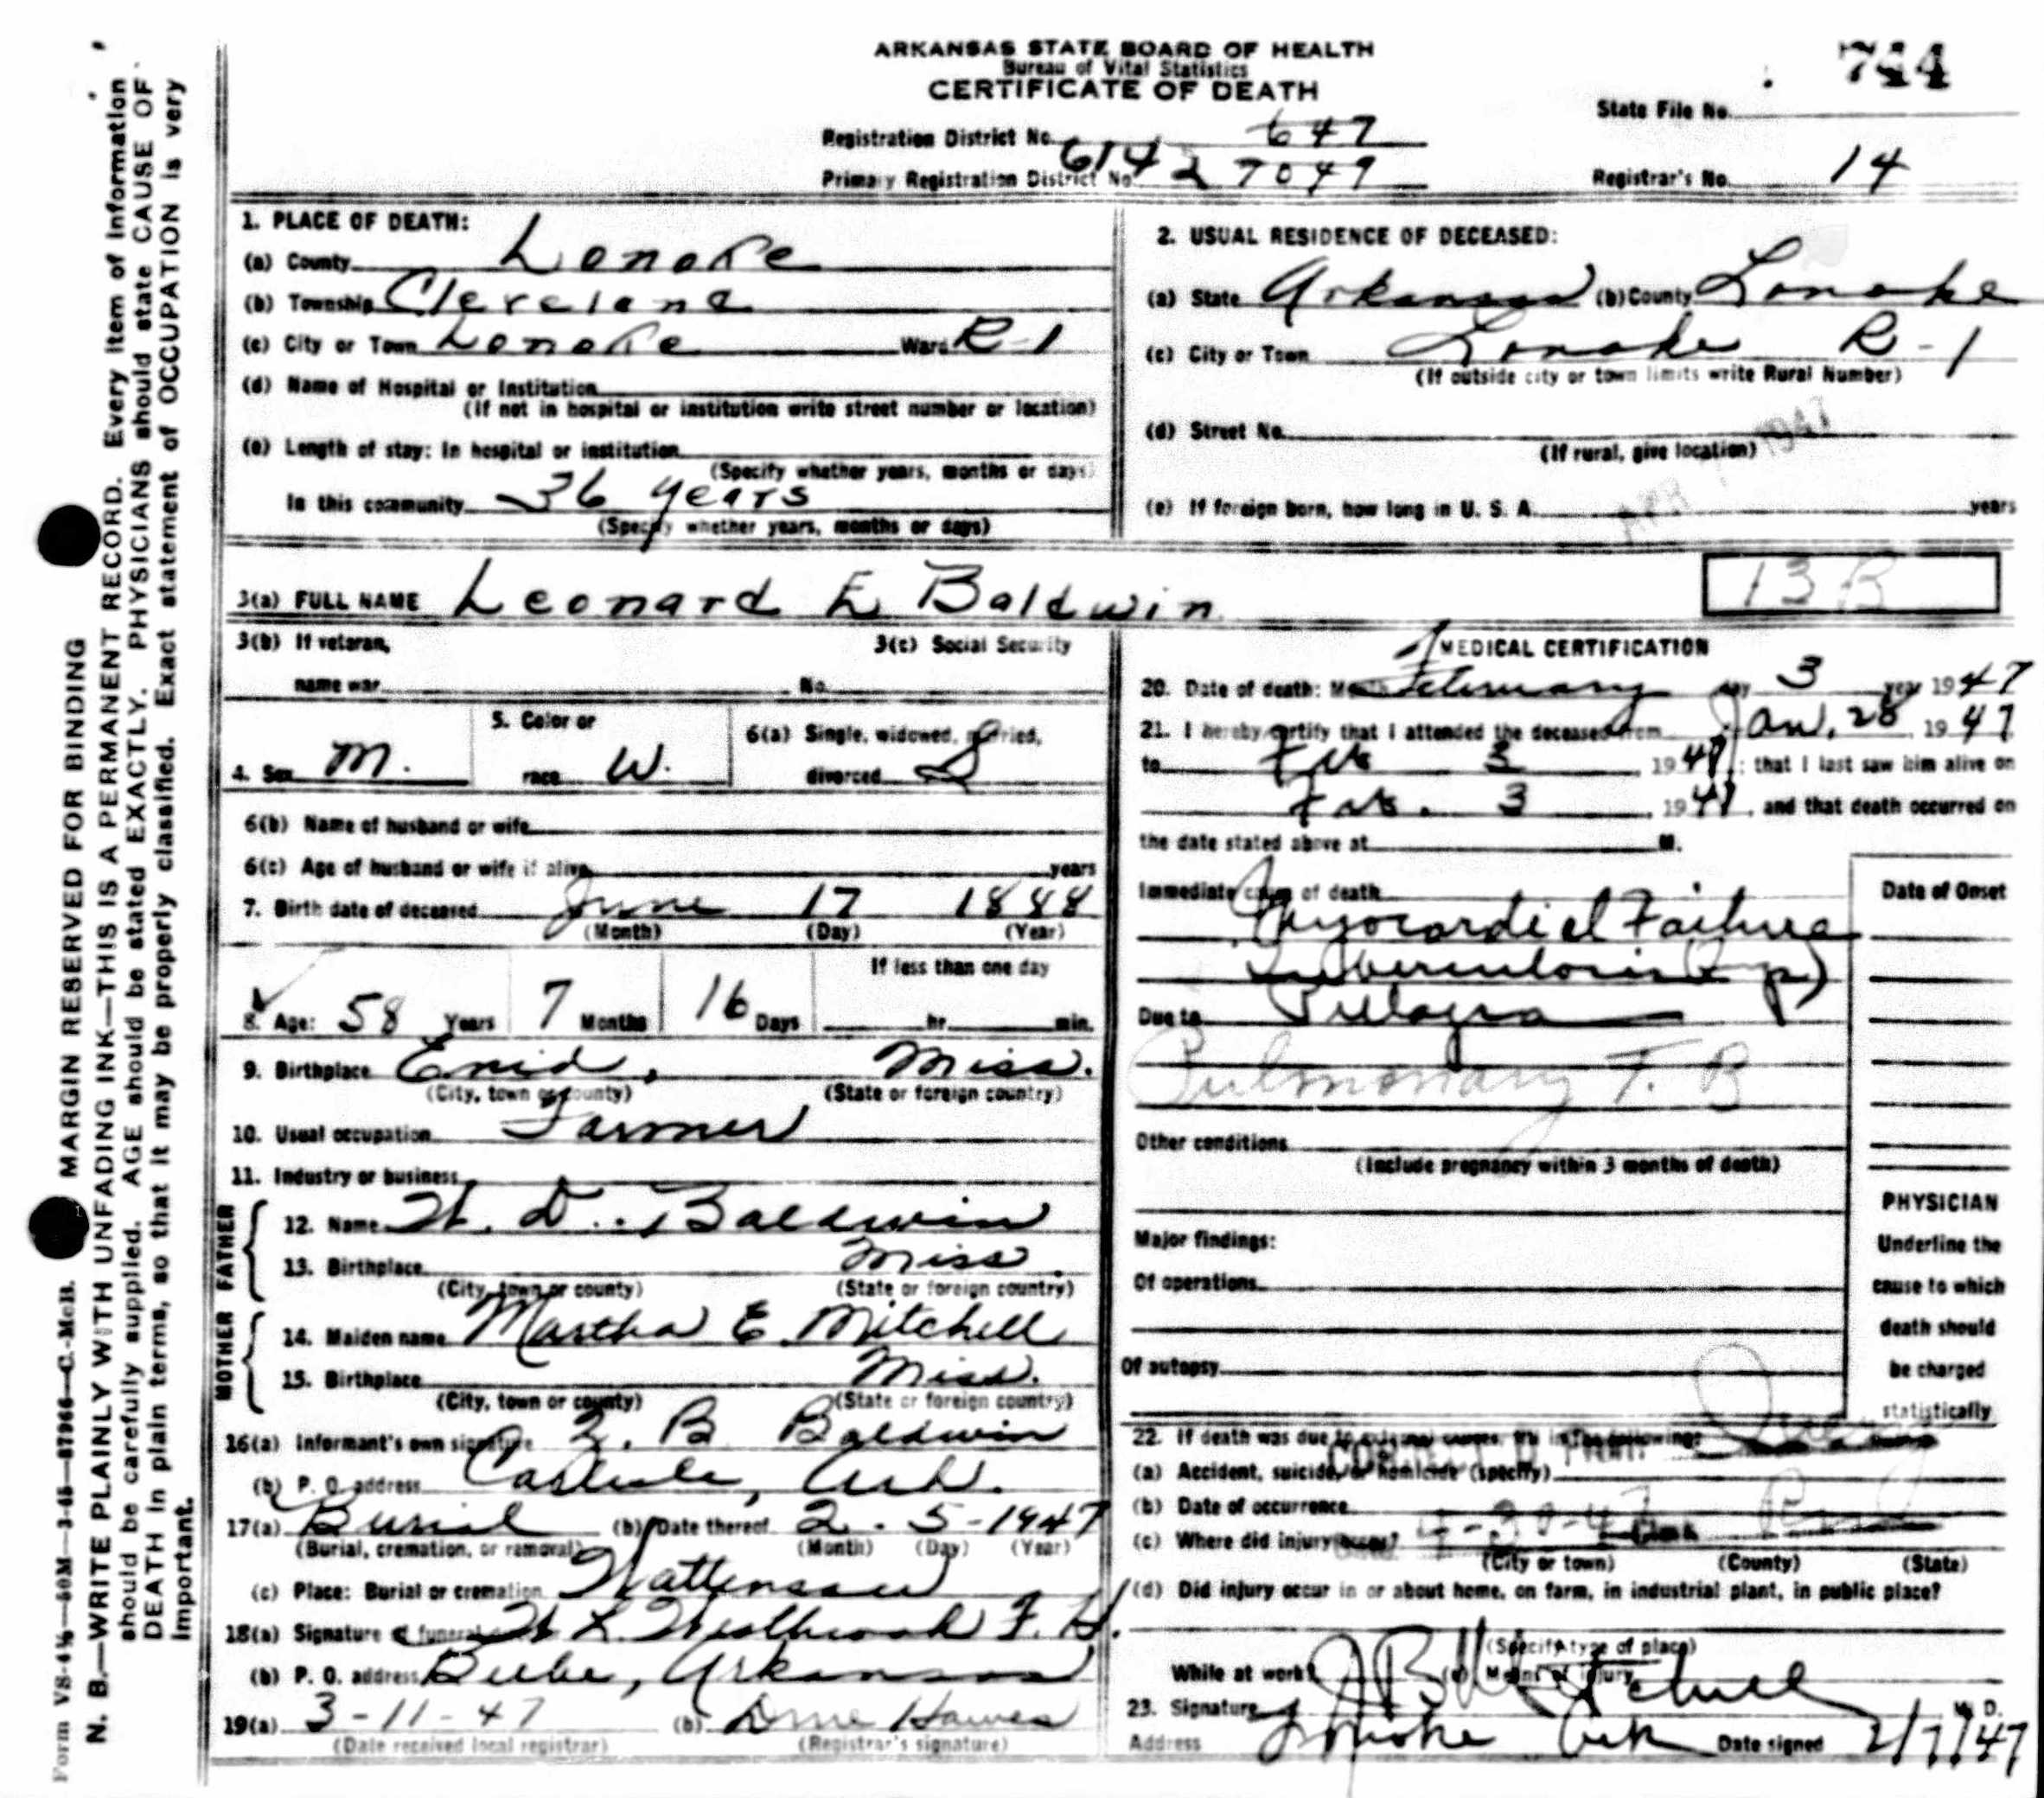 ARKANSAS STATE BOARD OF HEALTH
Bureau of Vital Statistics
CERTIFICATE OF DEATH
744
State File No.
Registration District No. 647
Primary Registration District No. 6142 7049
Registrar's No. 14
1. PLACE OF DEATH:
(a) County Lonoke
(b) Township Cleveland
(c) City or Town Lonoke Ward R-1
(d) Name of Hospital or Institution
(If not in hospital or institution write street number or location)
(e) Length of stay: In hospital or institution
(Specify whether years, months or days)
In this community 36 years
(Specify whether years, months or days)
2. USUAL RESIDENCE OF DECEASED:
(a) State Arkansas (b) County Lonoke
(c) City or Town Lonoke R-1
(If outside city or town limits write Rural Number)
(d) Street No.
(If rural, give location)
1947
(e) If foreign born, how long in U. S. A. years
3(a) FULL NAME Leonard E Baldwin
13B
3(b) If veteran, 3(c) Social Security
name war No.
4. Sex M. 5. Color or race W. 6(a) Single, widowed, married, divorced S
6(b) Name of husband or wife
6(c) Age of husband or wife if alive years
7. Birth date of deceased June 17 1888
(Month) (Day) (Year)
If less than one day
8. Age: 58 Years 7 Months 16 Days hr. min.
9. Birthplace Enid, Miss.
(City, town or county) (State or foreign country)
10. Usual occupation Farmer
11. Industry or business
FATHER
12. Name W. D. Baldwin
13. Birthplace Miss.
(City, town or county) (State or foreign country)
MOTHER
14. Maiden name Martha E. Mitchell
15. Birthplace Miss.
(City, town or county) (State or foreign country)
16(a) Informant's own signature B Baldwin
(b) P. O. address Carlisle, Ark.
17(a) Burial (b) Date thereof 2-5-1947
(Burial, cremation, or removal) (Month) (Day) (Year)
(c) Place: Burial or cremation Wattensaw
18(a) Signature of funeral W L Westbrook F. H.
(b) P. O. address Beebe, Arkansas
19(a) 3-11-47 (b) Hawes
(Date received local registrar) (Registrar's signature)
MEDICAL CERTIFICATION
20. Date of death: Month February day 3 year 1947
21. I hereby certify that I attended the deceased from Jan. 28, 1947
to Feb 3, 1947; that I last saw him alive on
Feb. 3, 1947, and that death occurred on
the date stated above at M.
Immediate cause of death Date of Onset
Myocardial Failure
Tuberculosis
Due to Pellagra
Pulmonary T. B
Other conditions
(Include pregnancy within 3 months of death)
PHYSICIAN
Underline the
cause to which
death should
be charged
statistically
Major findings:
Of operations
Of autopsy
22. If death was due to external causes, fill in the following:
(a) Accident, suicide, or homicide (specify)
(b) Date of occurrence
(c) Where did injury occur?
(City or town) (County) (State)
(d) Did injury occur in or about home, on farm, in industrial plant, in public place?
(Specify type of place)
While at work? (e) Means of injury
23. Signature J B M. D.
Address Lonoke Ark Date signed 2/7/47
MARGIN RESERVED FOR BINDING
N. B.—WRITE PLAINLY WITH UNFADING INK—THIS IS A PERMANENT RECORD. Every item of information
should be carefully supplied. AGE should be stated EXACTLY. PHYSICIANS should state CAUSE OF
DEATH in plain terms, so that it may be properly classified. Exact statement of OCCUPATION is very
important.